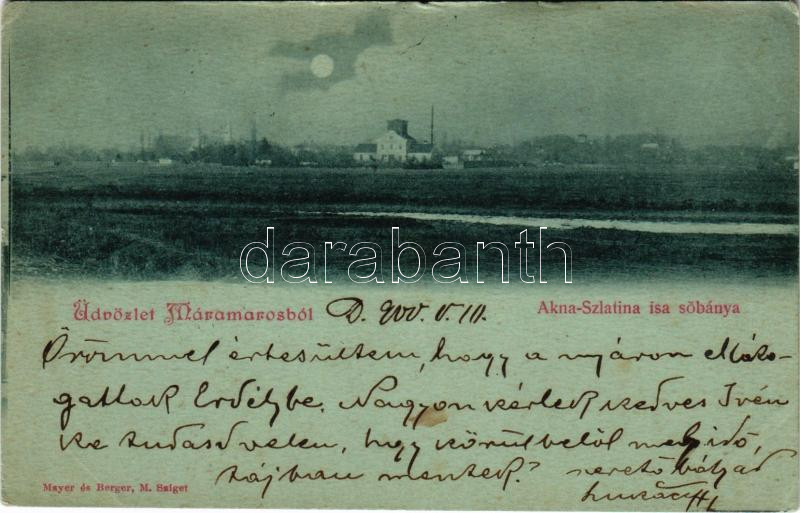 darabanth
Üdvözlet Máramarosból D. 900. V. 10. Akna-Szlatina isa sóbánya
Örömmel értesültem, hogy a nyáron ellátogattok
Erdélybe. Nagyon kérlek kedves
ke tudasd velem, hogy körülbelöl mely idő
tájban mentek? szerető bátyád
Mayer és Berger, M. Sziget